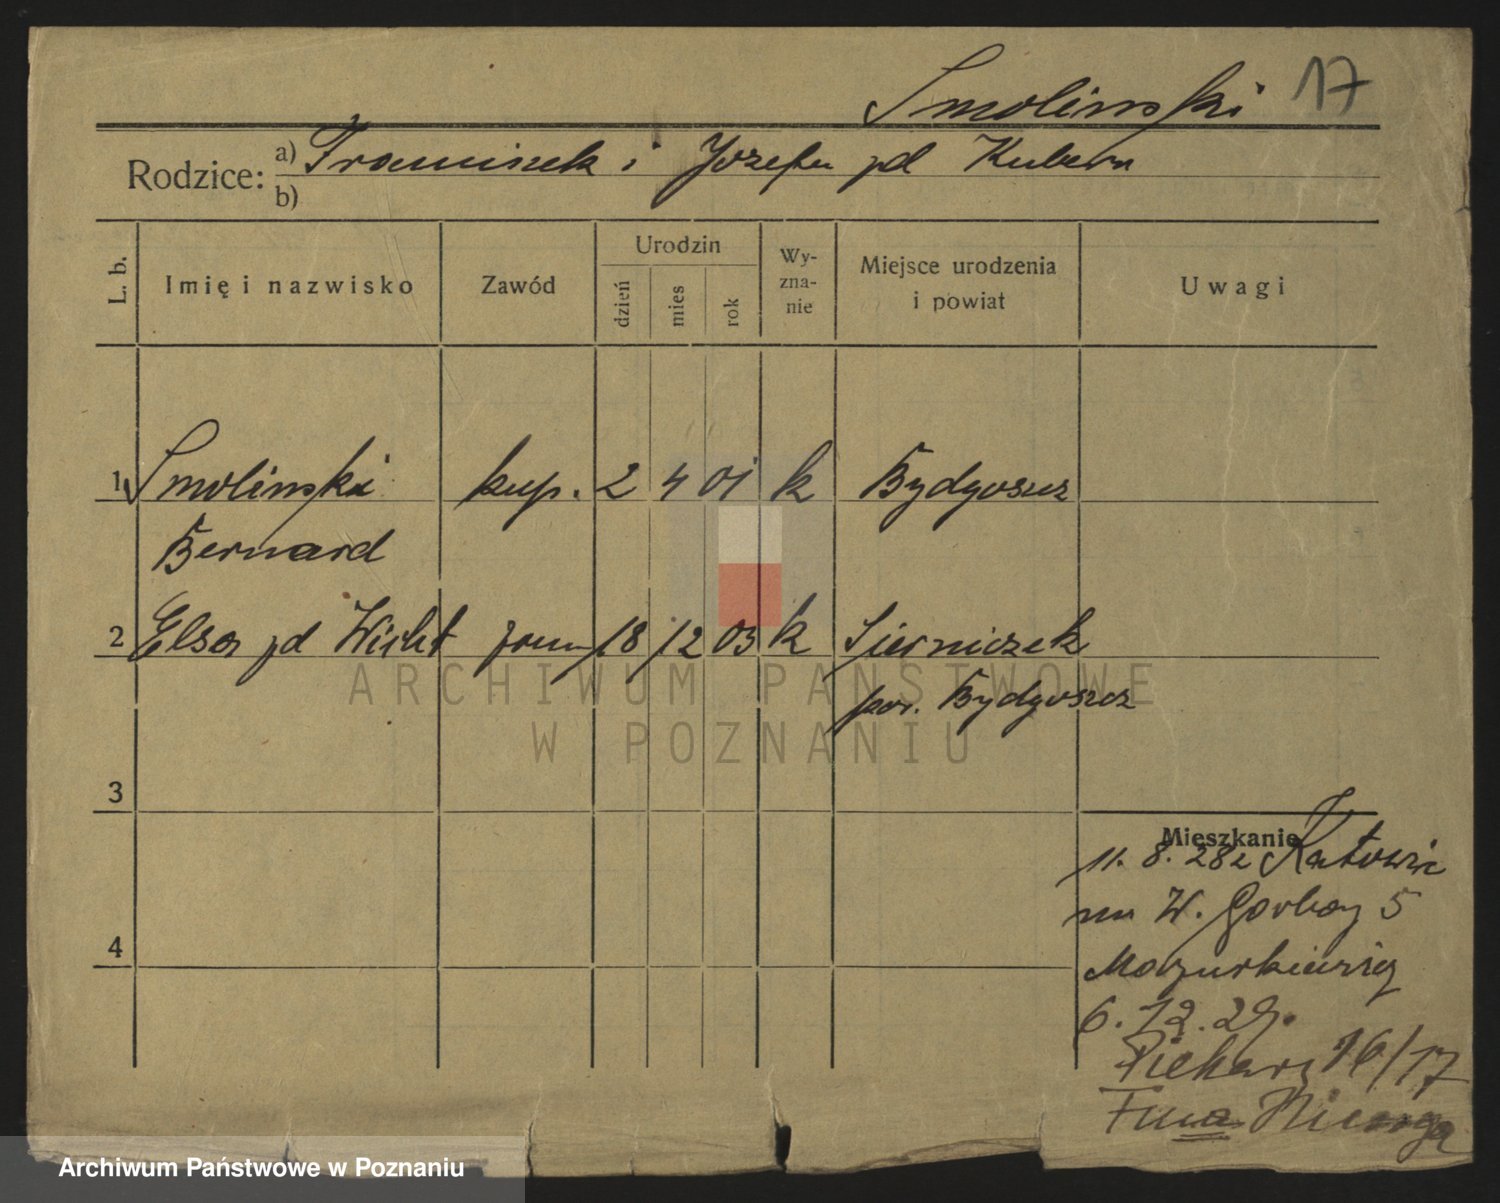 Smolinski 17
Rodzice: a) Franciszek i Józefa zd Kubera
b)
L. b. Imię i nazwisko Zawód Urodzin dzień mies rok Wyznanie Miejsce urodzenia i powiat Uwagi
1 Smolinski kup. 2 4 01 k Bydgoszcz
Bernard
2 Elsa zd Wicht żona 18 12 03 k Sierniczek
pow. Bydgoszcz
3
Mieszkanie
11. 8. 28 z Katowic
na W. Garbary 5
Mazurkiewicz
4
6. 12. 29.
Piekary 16/17
Fma
ARCHIWUM PAŃSTWOWE
W POZNANIU
Archiwum Państwowe w Poznaniu